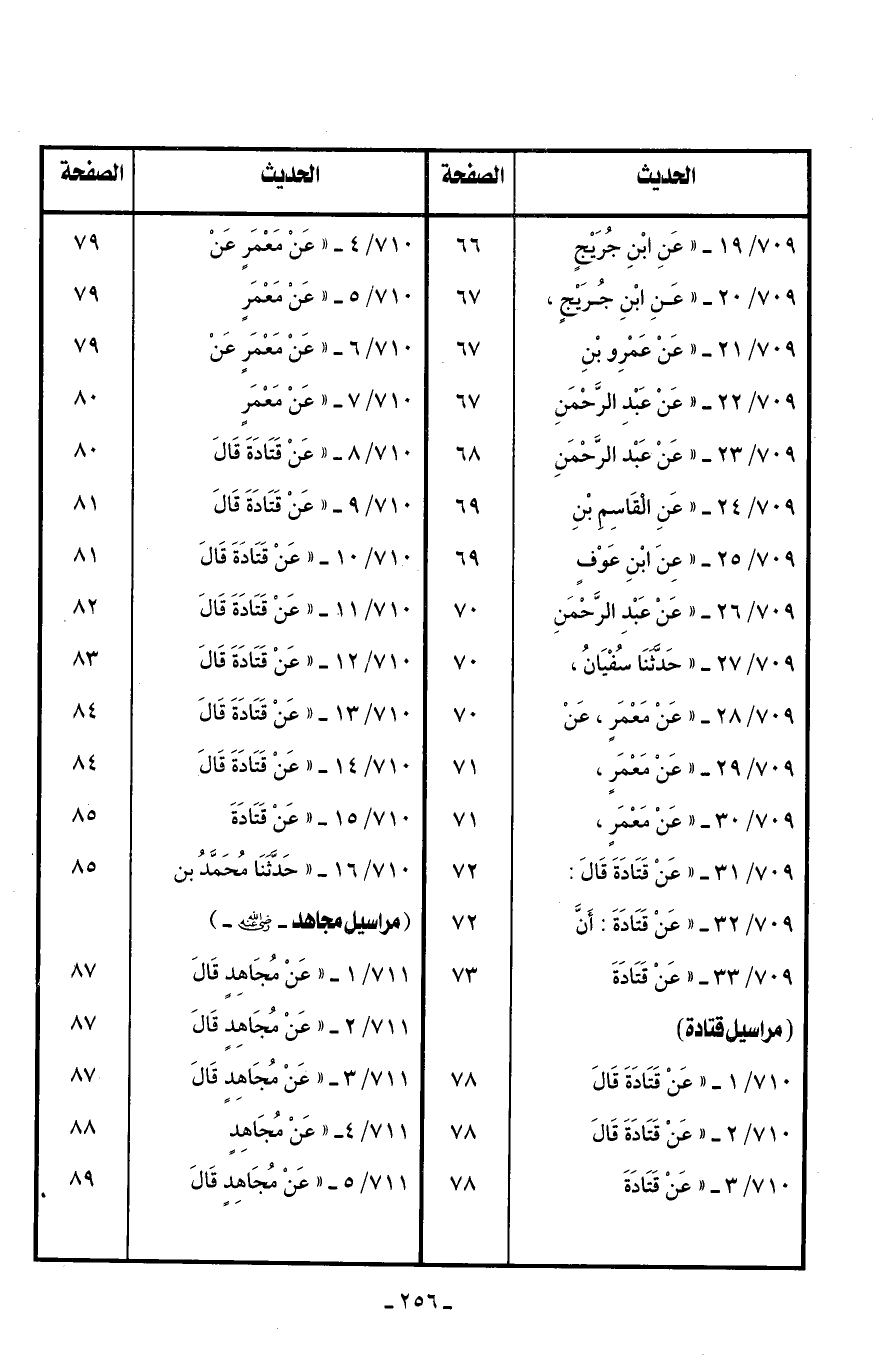 الحديث الصفحة
١٩/٧٠٩ ـ « عَنِ ابْنِ جُرَيْجٍ ٦٦
٢٠/٧٠٩ ـ « عَـنِ ابْنِ جُـرَيْجٍ ، ٦٧
٢١/٧٠٩ ـ « عَنْ عَمْرِو بْنِ ٦٧
٢٢/٧٠٩ ـ « عَنْ عَبْدِ الرَّحْمَنِ ٦٧
٢٣/٧٠٩ ـ « عَنْ عَبْدِ الرَّحْمَنِ ٦٨
٢٤/٧٠٩ ـ « عَنِ الْقَاسِمِ بْنِ ٦٩
٢٥/٧٠٩ ـ « عنِ ابْنِ عَوْفٍ ٦٩
٢٦/٧٠٩ ـ « عَنْ عَبْدِ الرَّحْمَنِ ٧٠
٢٧/٧٠٩ ـ « حَدَّثَنَا سُفْيَانُ ، ٧٠
٢٨/٧٠٩ ـ « عَنْ مَعْمَرٍ ، عَنْ ٧٠
٢٩/٧٠٩ ـ « عَنْ مَعْمَرٍ ، ٧١
٣٠/٧٠٩ ـ « عَنْ مَعْمَرٍ ، ٧١
٣١/٧٠٩ ـ « عَنْ قَتَادَةَ قَالَ : ٧٢
٣٢/٧٠٩ ـ « عَنْ قَتَادَةَ : أَنَّ ٧٢
٣٣/٧٠٩ ـ « عَنْ قَتَادَةَ ٧٣
( مراسيل قتادة )
١/٧١٠ ـ « عَنْ قَتَادَةَ قَالَ ٧٨
٢/٧١٠ ـ « عَنْ قَتَادَةَ قَالَ ٧٨
٣/٧١٠ ـ « عَنْ قَتَادَةَ ٧٨
الحديث الصفحة
٤/٧١٠ ـ « عَنْ مَعْمَرٍ عَنْ ٧٩
٥/٧١٠ ـ « عَنْ مَعْمَرٍ ٧٩
٦/٧١٠ ـ « عَنْ مَعْمَرٍ عَنْ ٧٩
٧/٧١٠ ـ « عَنْ مَعْمَرٍ ٨٠
٨/٧١٠ ـ « عَنْ قَتَادَةَ قَالَ ٨٠
٩/٧١٠ ـ « عَنْ قَتَادَةَ قَالَ ٨١
١٠/٧١٠ ـ « عَنْ قَتَادَةَ قَالَ ٨١
١١/٧١٠ ـ « عَنْ قَتَادَةَ قَالَ ٨٢
١٢/٧١٠ ـ « عَنْ قَتَادَةَ قَالَ ٨٣
١٣/٧١٠ ـ « عَنْ قَتَادَةَ قَالَ ٨٤
١٤/٧١٠ ـ « عَنْ قَتَادَةَ قَالَ ٨٤
١٥/٧١٠ ـ « عَنْ قَتَادَةَ ٨٥
١٦/٧١٠ ـ « حَدَّثَنَا مُحَمَّدُ بن ٨٥
( مراسيل مجاهد ـ رضي الله عنه ـ )
١/٧١١ ـ « عَنْ مُجَاهِدٍ قَالَ ٨٧
٢/٧١١ ـ « عَنْ مُجَاهِدٍ قَالَ ٨٧
٣/٧١١ ـ « عَنْ مُجَاهِدٍ قَالَ ٨٧
٤/٧١١ ـ « عَنْ مُجَاهِدٍ ٨٨
٥/٧١١ ـ « عَنْ مُجَاهِدٍ قَالَ ٨٩
ـ ٢٥٦ ـ